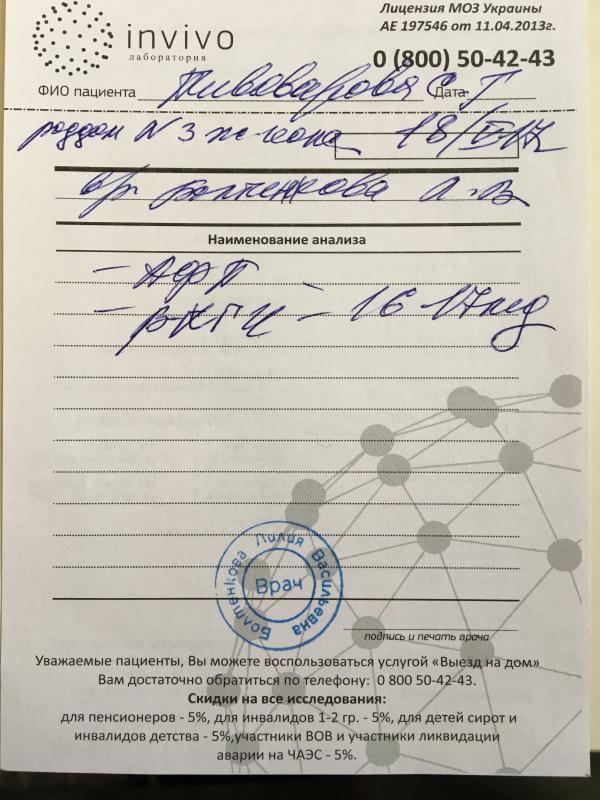 Лицензия МОЗ Украины
АЕ 197546 от 11.04.2013г.
invivo
лаборатория
0 (800) 50-42-43
ФИО пациента Пивоварова С. Г Дата
роддом N 3 ж-конс 18/
вр Болтенкова Л. В
Наименование анализа
– АФП
– β ХГЧ – 16 17 нед
Болтенкова Лилия Васильевна
Врач
подпись и печать врача
Уважаемые пациенты, Вы можете воспользоваться услугой «Выезд на дом»
Вам достаточно обратиться по телефону: 0 800 50-42-43.
Скидки на все исследования:
для пенсионеров - 5%, для инвалидов 1-2 гр. - 5%, для детей сирот и
инвалидов детства - 5%,участники ВОВ и участники ликвидации
аварии на ЧАЭС - 5%.